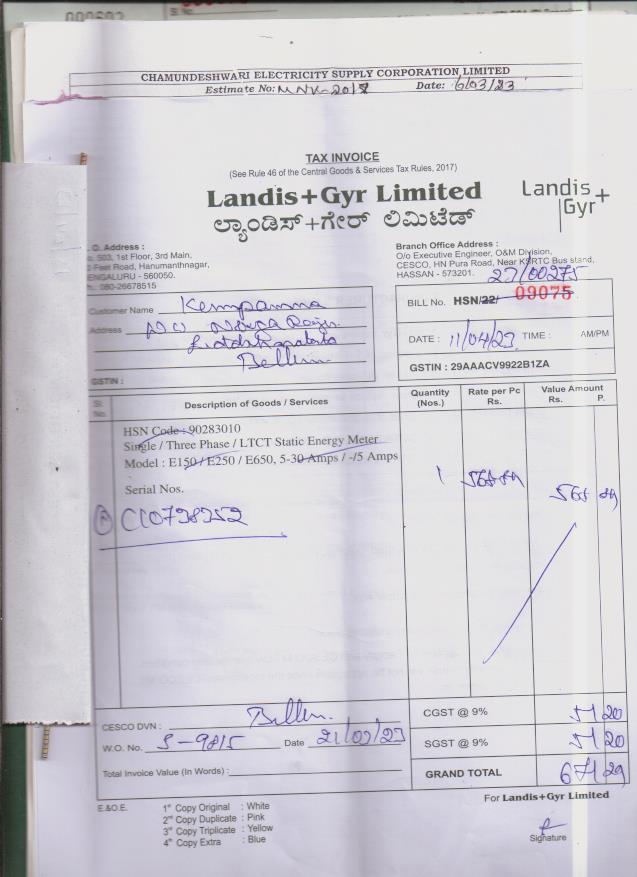 CHAMUNDESHWARI ELECTRICITY SUPPLY CORPORATION LIMITED
Estimate No: Date: 6/03/23
TAX INVOICE
(See Rule 46 of the Central Goods & Services Tax Rules, 2017)
Landis+Gyr Limited
Landis+
Gyr
ಲ್ಯಾಂಡಿಸ್+ಗೇರ್ ಲಿಮಿಟೆಡ್
O. Address :
503, 1st Floor, 3rd Main,
Feet Road, Hanumanthnagar,
ENGALURU - 560050.
080-26678515
Branch Office Address :
O/o Executive Engineer, O&M Division,
CESCO, HN Pura Road, Near KSRTC Bus stand,
HASSAN - 573201.
23/00275
BILL No. HSN/22/ 09075
Customer Name Kempamma
Address
GSTIN :
DATE : 11/04/23 TIME : AM/PM
GSTIN : 29AAACV9922B1ZA
Sl. No. Description of Goods / Services Quantity (Nos.) Rate per Pc Rs. Value Amount Rs. P.
HSN Code : 90283010
Single / Three Phase / LTCT Static Energy Meter
Model : E150 / E250 / E650, 5-30 Amps / -/5 Amps
1
Serial Nos.
CESCO DVN :
W.O. No. S-9815 Date
Total Invoice Value (In Words) :
CGST @ 9% 51 20
SGST @ 9% 51 20
GRAND TOTAL 671 29
E.&O.E. 1st Copy Original : White
2nd Copy Duplicate : Pink
3rd Copy Triplicate : Yellow
4th Copy Extra : Blue
For Landis+Gyr Limited
Signature